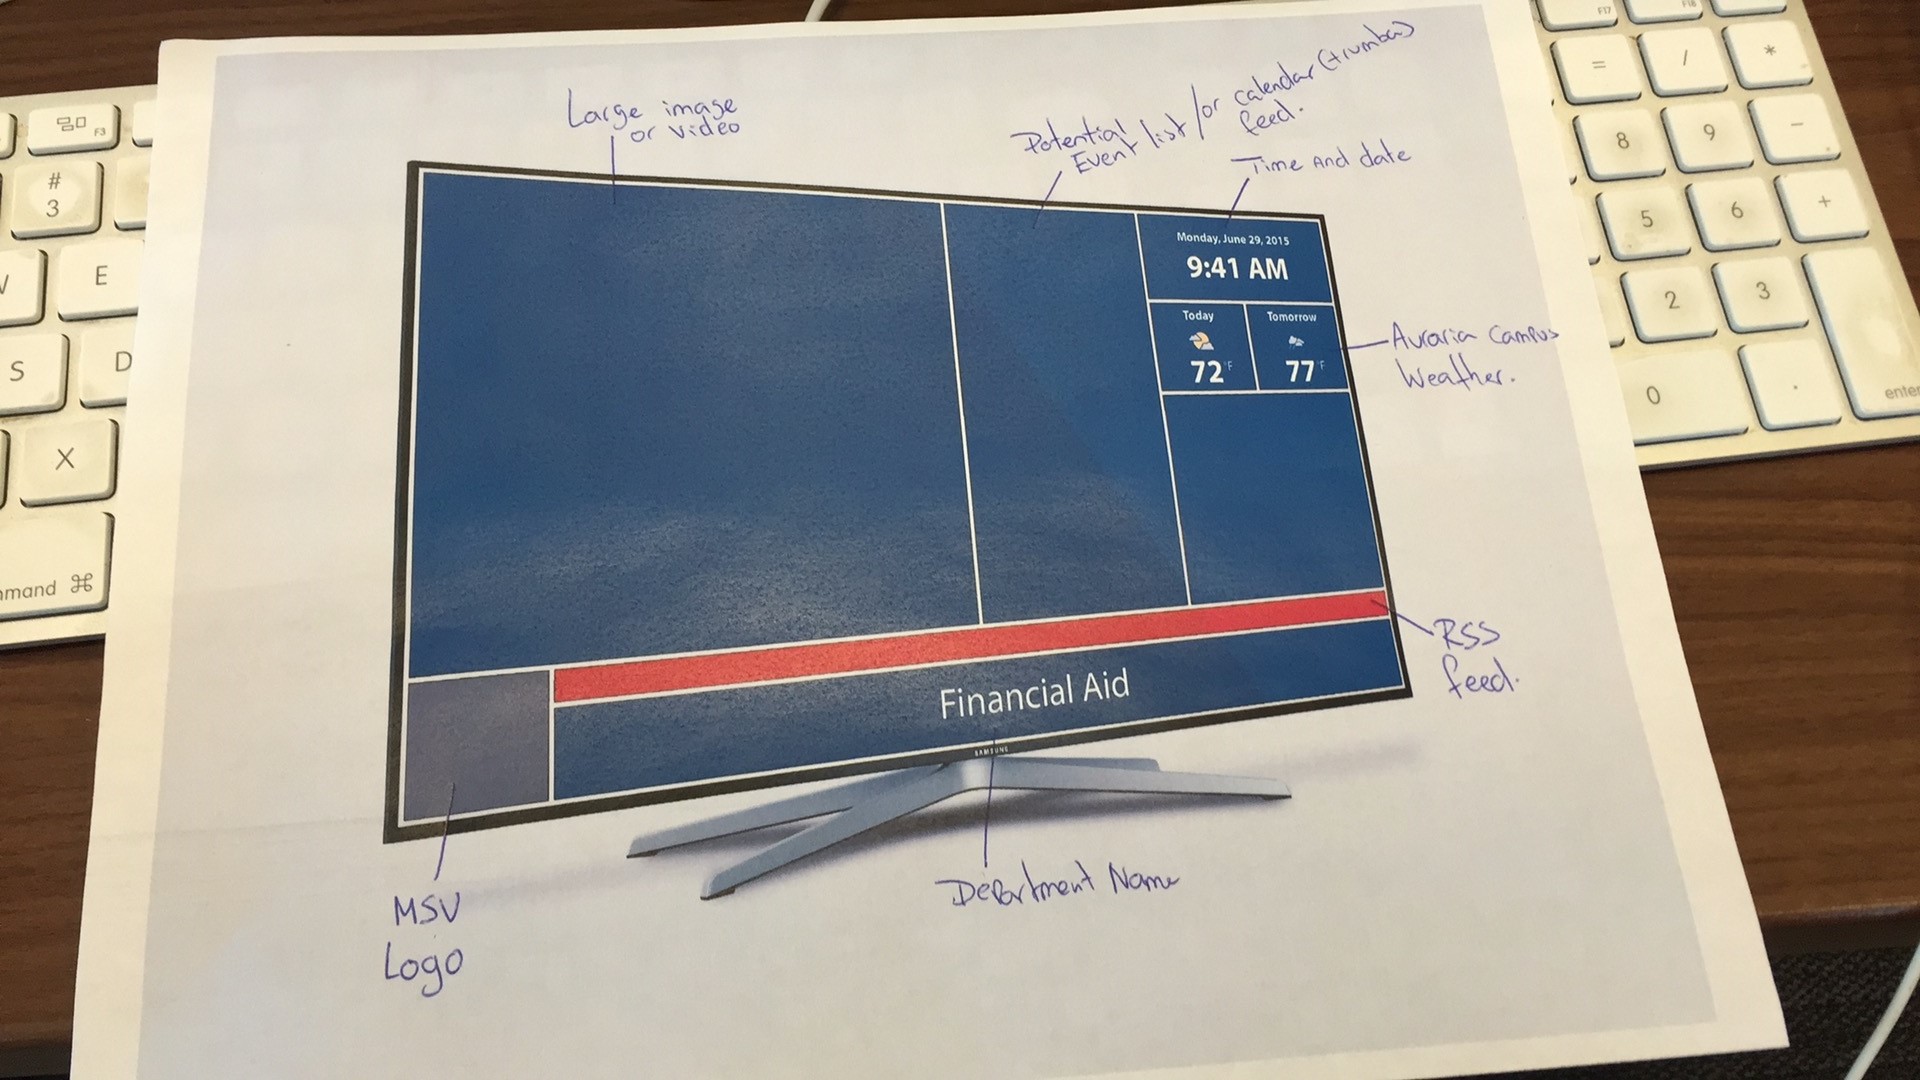 Large image
or video
Potential
Event list/or calendar (trumba)
feed.
Time and date
Monday, June 29, 2015
9:41 AM
Today
Tomorrow
72 °F
77 °F
Auraria Campus
Weather.
RSS
feed.
Financial Aid
SAMSUNG
Department Name
MSV
Logo
F3
#
3
E
S
D
X
mmand ⌘
F17
F18
=
/
*
8
9
-
5
6
+
2
3
0
.
enter